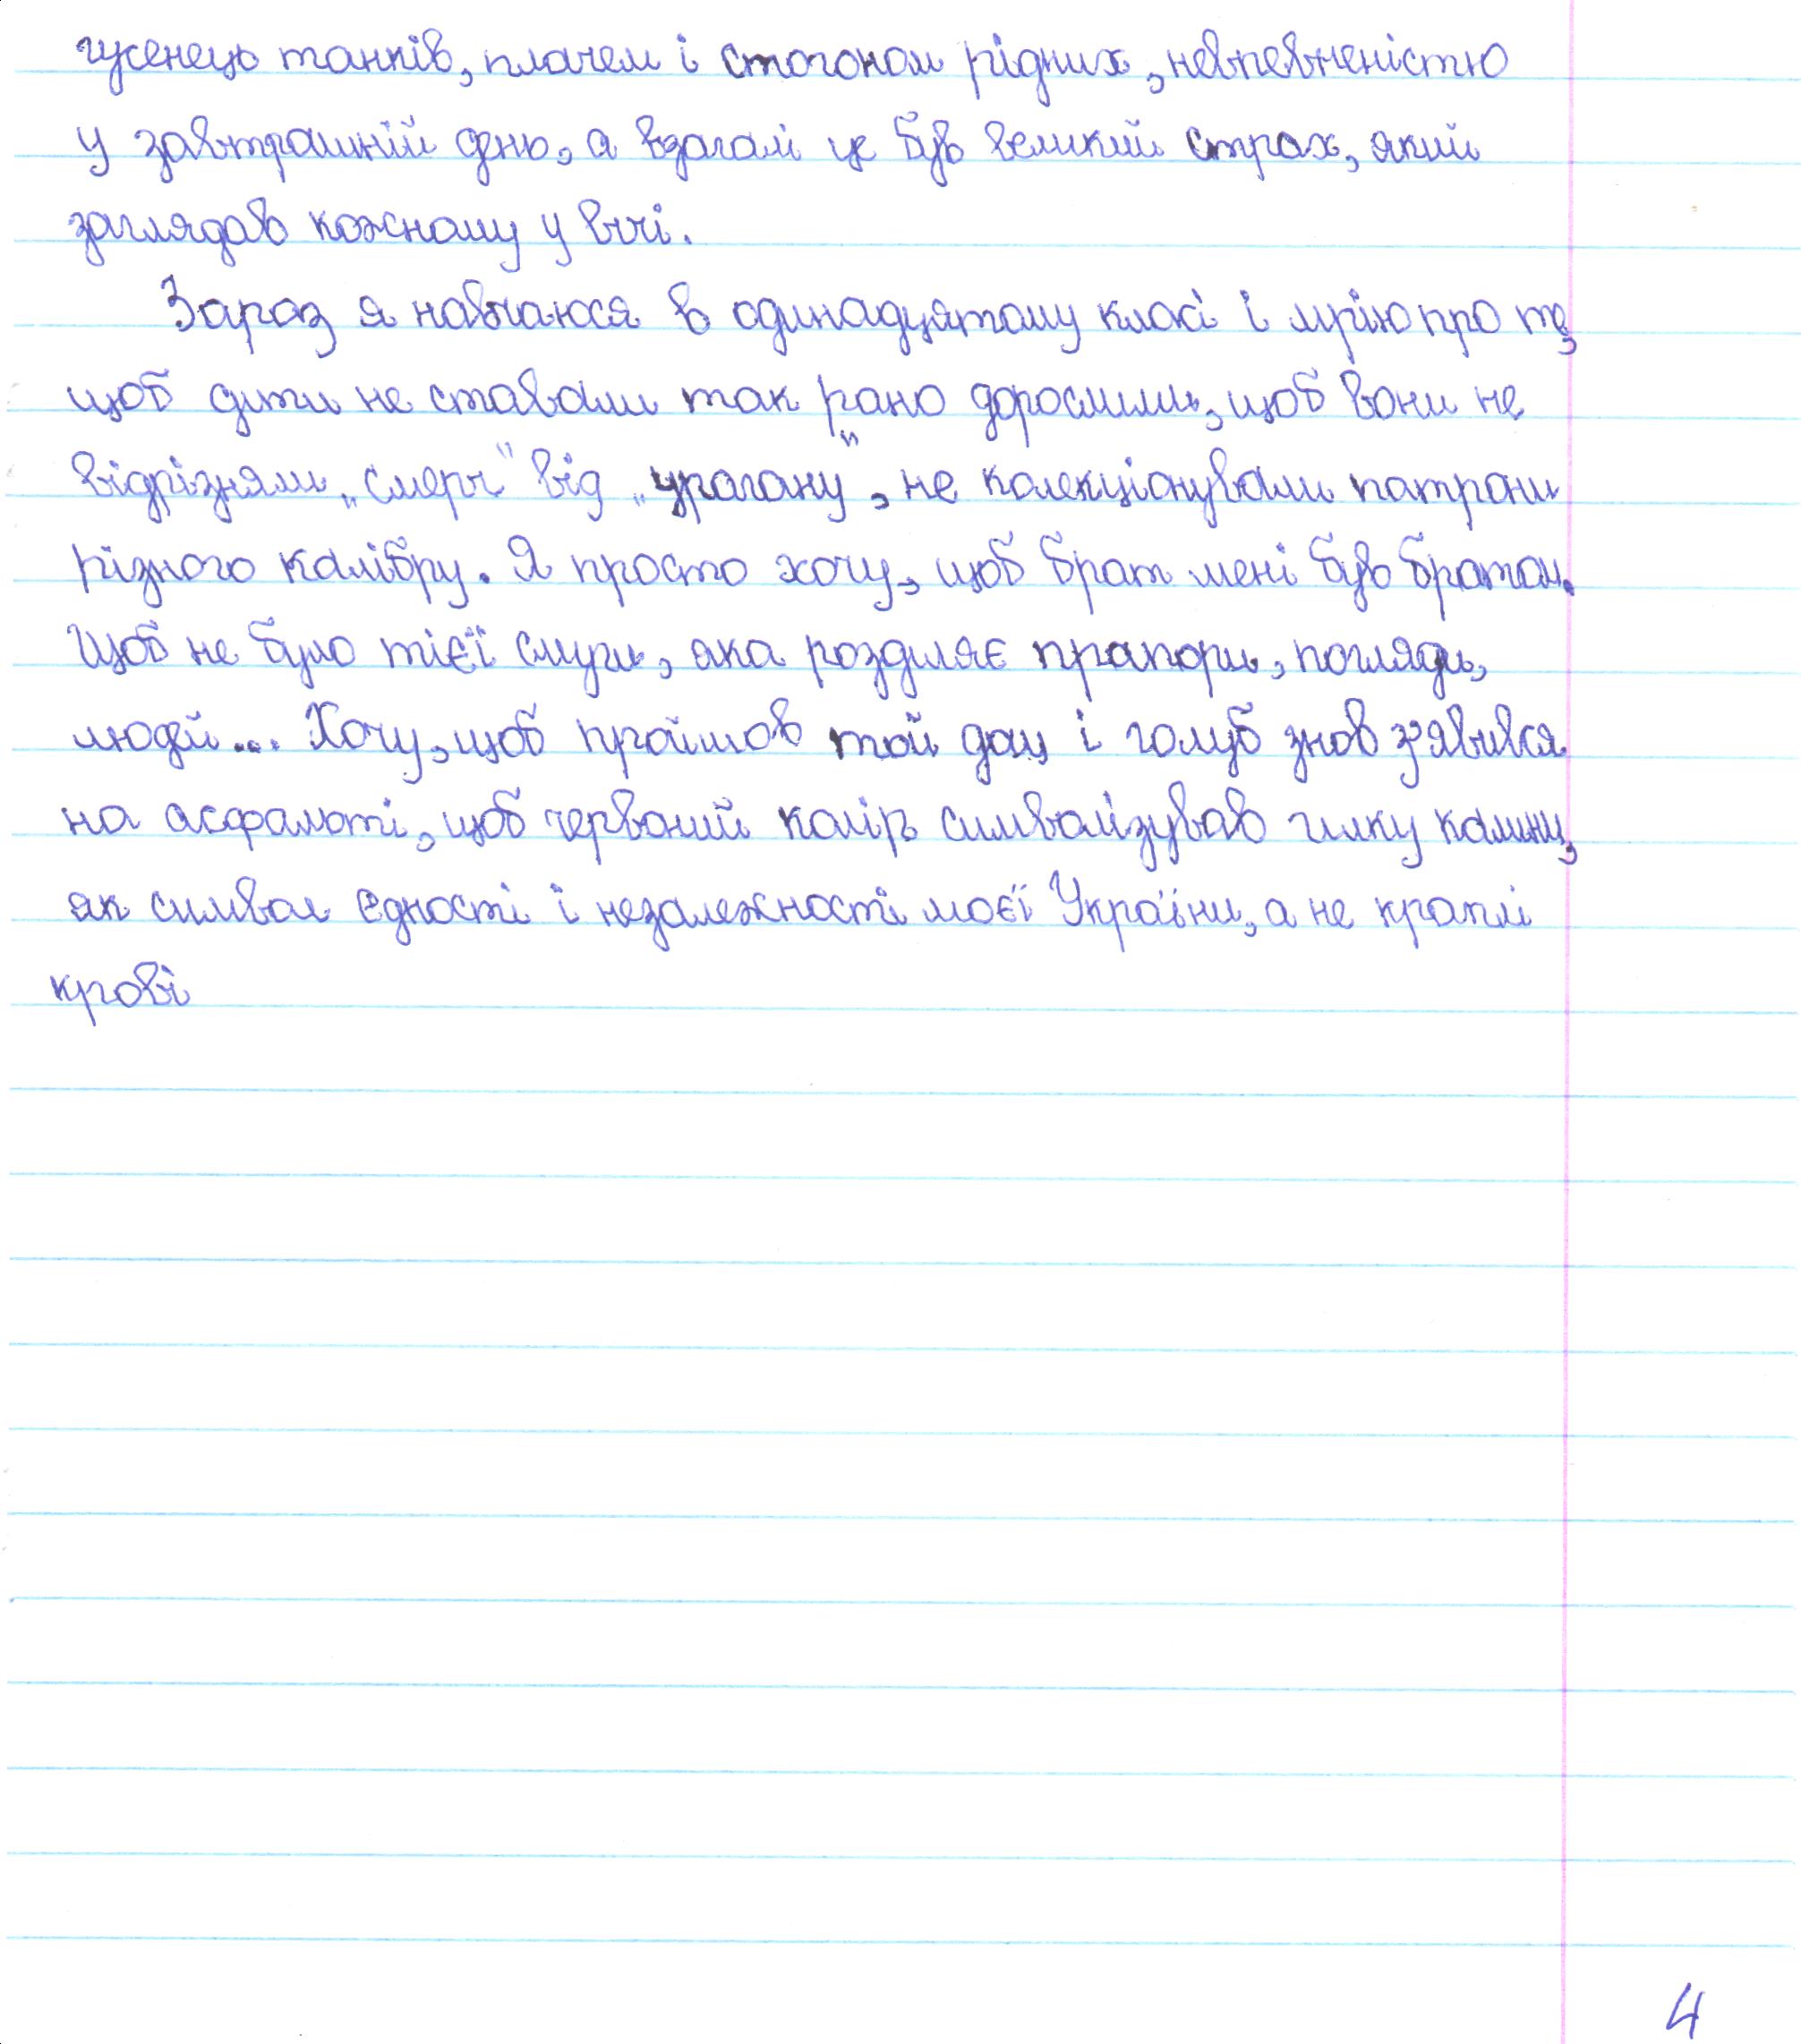 гусенець танків, плачем і стогоном рідних, невпевненістю
у завтрашній день, а взагалі це був великий страх, який
заглядав кожному у вічі.
Зараз я навчаюся в одинадцятому класі і мрію про те,
щоб діти не ставали так рано дорослими, щоб вони не
відрізняли „смерч" від „урагану", не колекціонували патрони
різного калібру. Я просто хочу, щоб брат мені був братом.
Щоб не було тієї смуги, яка розділяє прапори, погляди,
людей... Хочу, щоб пройшов той дощ і голуб знов з'явився
на асфальті, щоб червоний колір символізував гілку калини,
як символ єдності і незалежності моєї України, а не краплі
крові
4